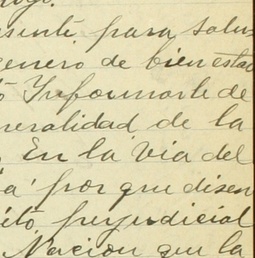 esente, para salu
enero de bienestar
Informarle de
neralidad de la
En la via del
a' por que disen
ito, perjudicial
Nacion que la